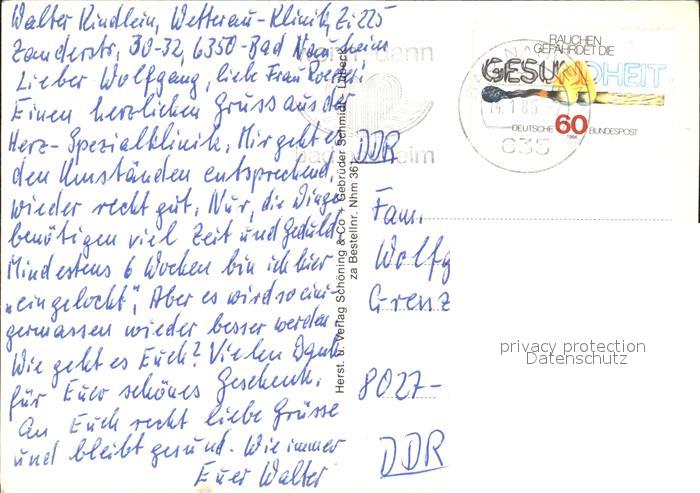 Walter Kindlein, Wetterau-Klinik, Zi. 225
Zanderstr. 30-32, 6350-Bad Nauheim
Lieber Wolfgang, liebe Frau
Einen herzlichen Gruss aus der
Herz-Spezialklinik. Mir geht es
den Umständen entsprechend,
wieder recht gut. Nur, die Dinge
benötigen viel Zeit und Geduld.
Mindestens 6 Wochen bin ich hier
„eingelocht“. Aber es wird so eini-
germassen wieder besser werden.
Wie geht es Euch? Vielen Dank
für Euer schönes Geschenk.
An Euch recht liebe Grüsse
und bleibt gesund. Wie immer
Euer Walter
Herst. u. Verlag Schöning & Co + Gebrüder Schmidt, Lübeck
za Bestellnr. Nhm 361
dann
heim
RAUCHEN
GEFÄHRDET DIE
GESUNDHEIT
DEUTSCHE 60 BUNDESPOST
1984
635
DDR
Fam.
Wolfg
Grenz
8027-
DDR
privacy protection
Datenschutz